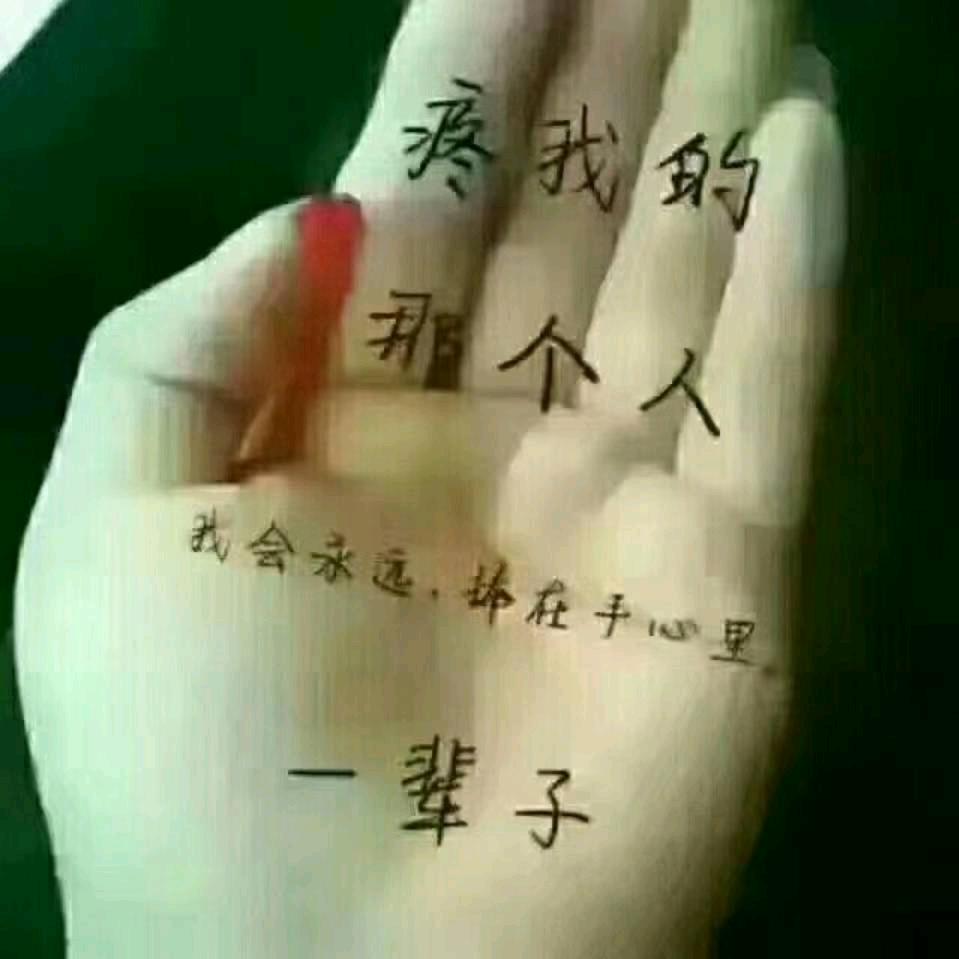 疼我的
那个人
我会永远,捧在手心里
一辈子